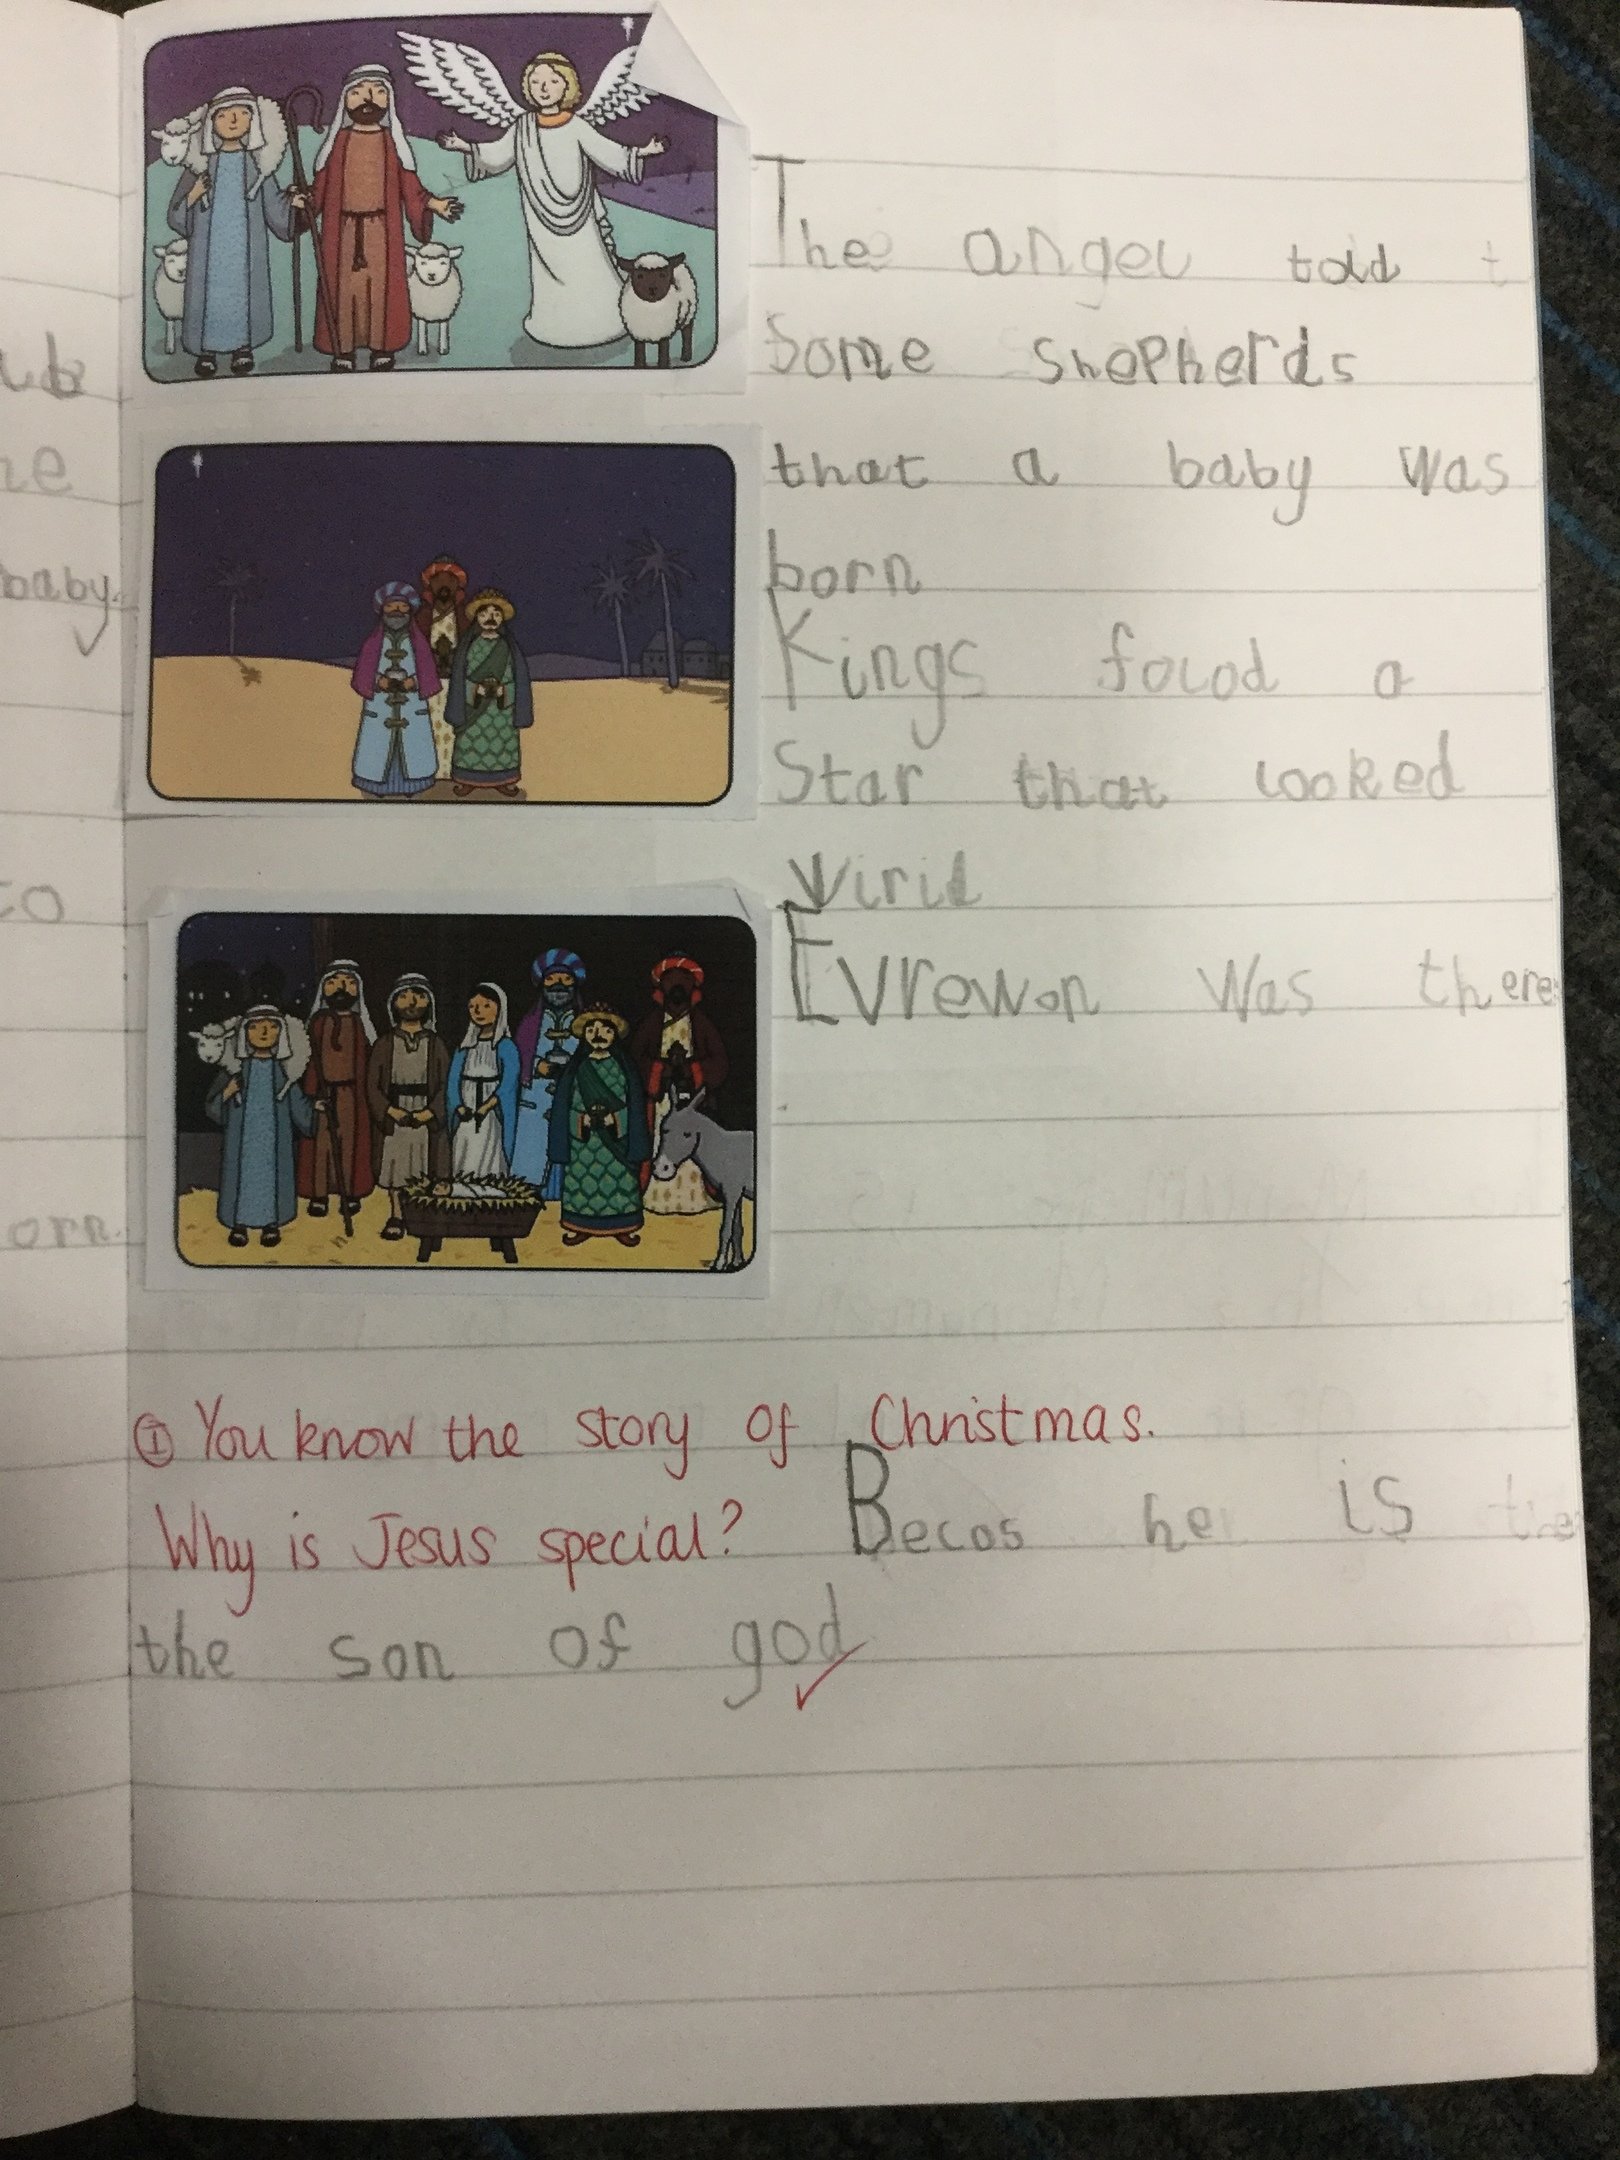 ub
he
baby.
to
orn.
The angel told t
Some shepherds
that a baby was
born
Kings foud a
Star that looked
wirid
Evrewon was there
① You know the story of Christmas.
Why is Jesus special? Becos he is the
the son of god